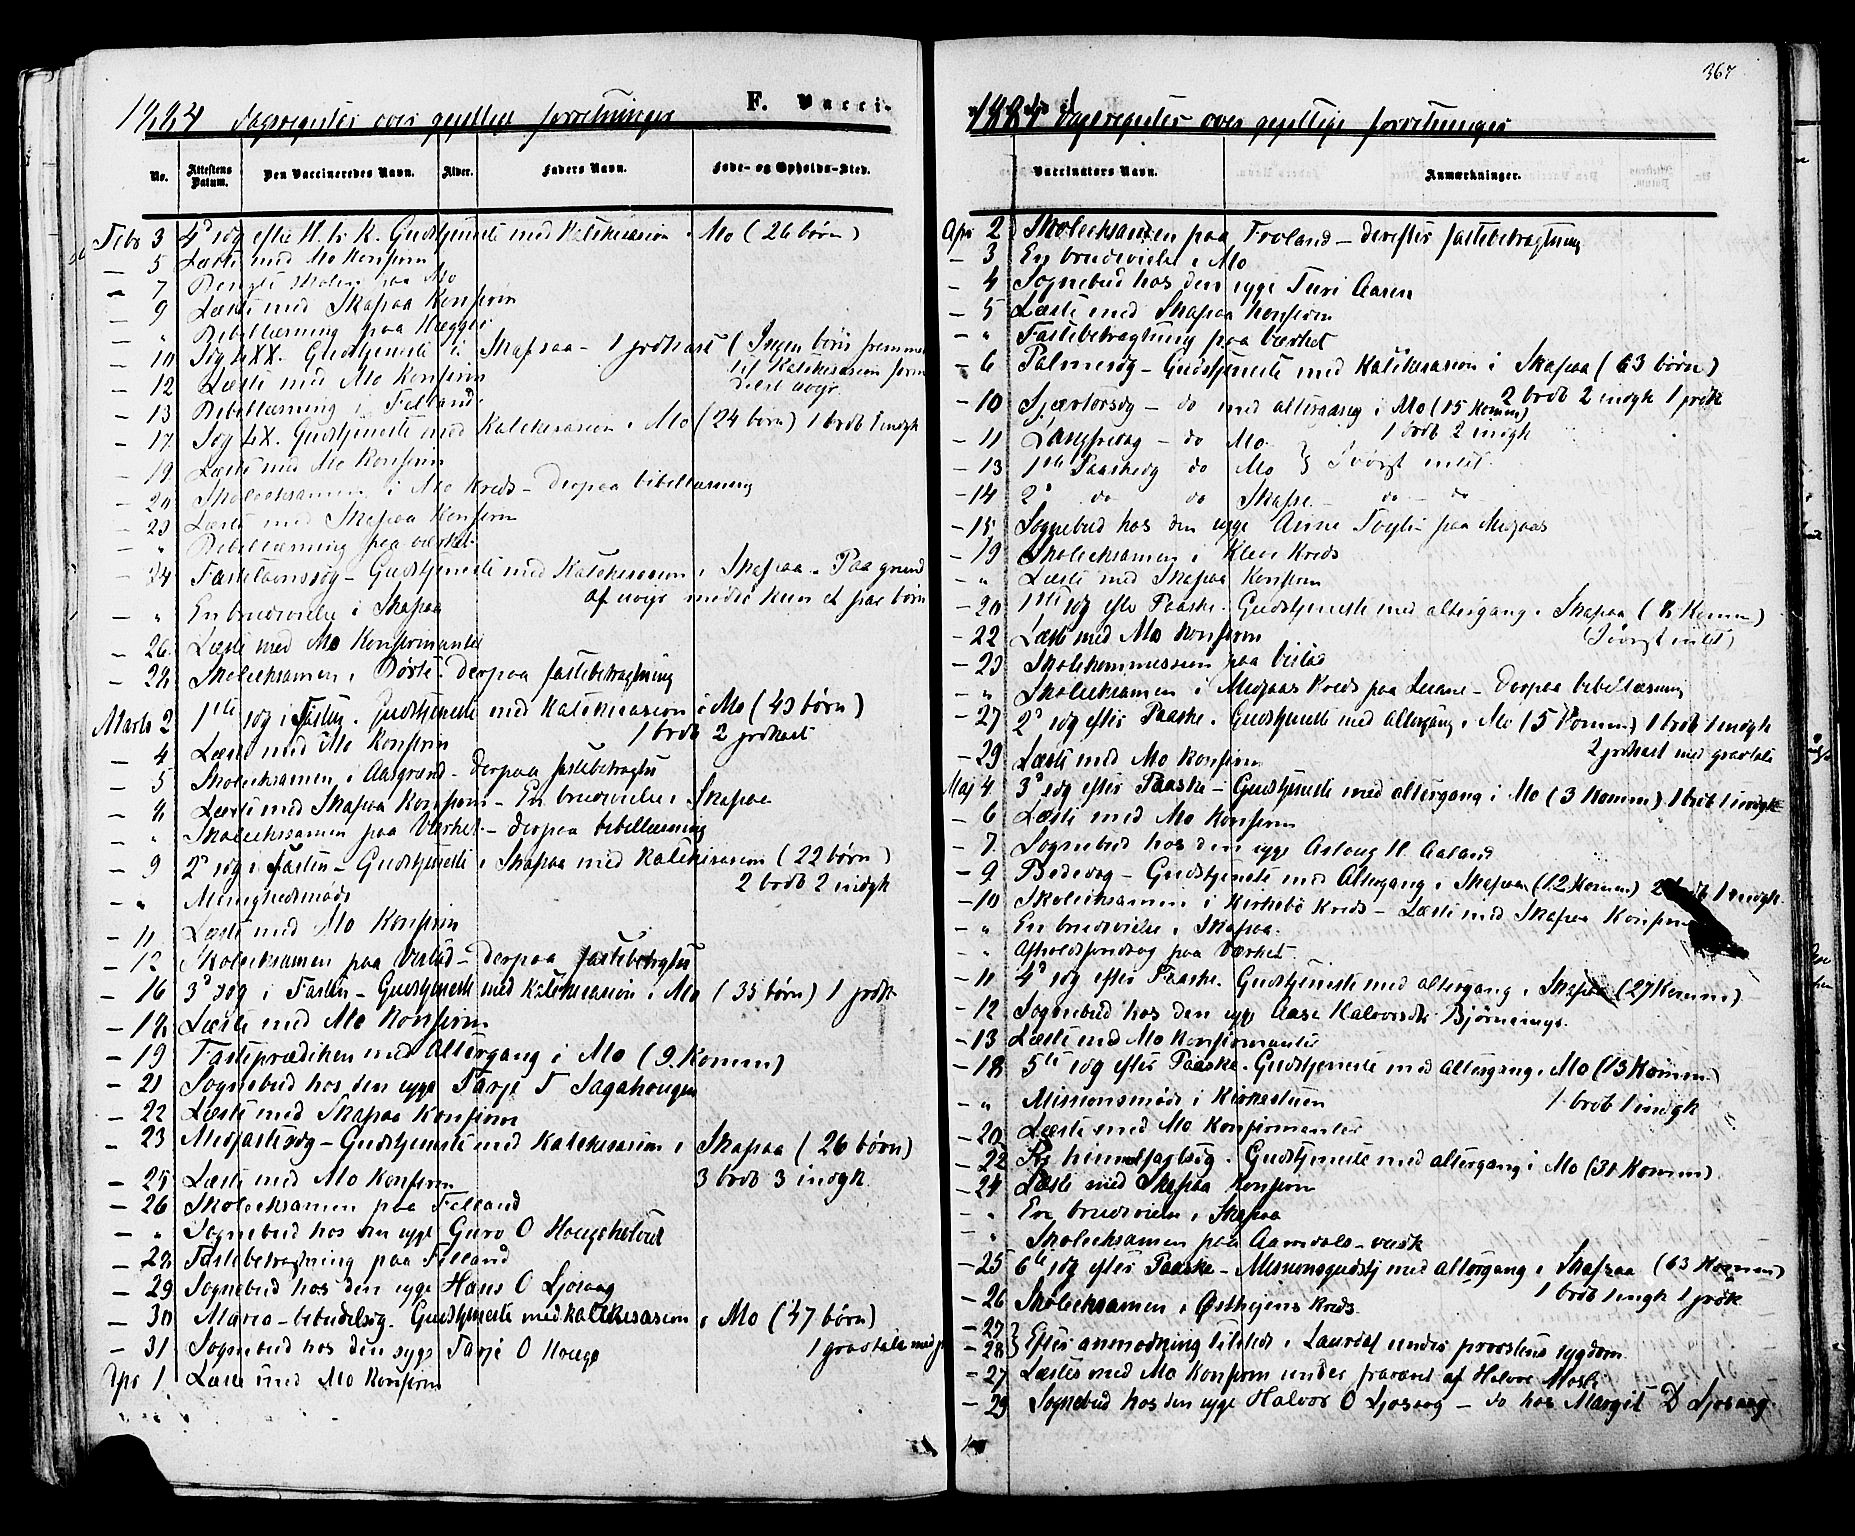 1884 Dagsregister over geistlige forretninger F. Vacci-
No. Attestens Datum. Den Vaccineredes Navn. Alder. Faders Navn. Føde- og Opholds-Sted.
Febr 3 4d søg efter H. tr. K. Gudstjeneste med Katekisasion i Mo (26 børn)
— 5 Læste med Mo Konfirm
— 7 skolen paa Mo
— 9 Læste med Skafsaa Konfirm
— " Bibellæsning paa Hægge
— 10 Søg LXX. Gudstjeneste i Skafsaa — 1 jrdkast (Ingen børn fremme
til Katekisasion form
delst uvejr.
— 12 Læste med Mo Konfirm
— 13 Bibellæsning i Felland
— 17 Søg LX. Gudstjeneste med Katekisasion i Mo (24 børn) 1 brdb 1 indgk
— 19 Læste med Mo Konfirm
— 20 Skoleeksamen i Mo Kreds — derpaa bibellæsning
— 23 Læste med Skafsaa Konfirm
— " Bibellæsning paa værket
— 24 Fastelavnssøg — Gudstjeneste med Katekisasion i Skafsaa — Paa grund
af uvejr mødte kun et par børn
— " En brudevielse i Skafsaa
— 26 Læste med Mo Konfirmanter
— 28 Skoleeksamen i Børte. derpaa fastebetragtning
Marts 2 1ste søg i Fasten. Gudstjeneste med Katekisasion i Mo (43 børn)
1 brdb 2 jrdkast
— 4 Læste med Mo Konfirm
— 5 Skoleeksamen i Aasgrend — derpaa fastebetragtn
— 8 Læste med Skafsaa Konfirm — En brudevielse i Skafsaa
— " Skoleeksamen paa Værket — derpaa bibellæsning
— 9 2d søg i Fasten — Gudstjeneste i Skafsaa med Katekisasion (22 børn)
2 brdb 2 indgk
— " Menighedsmøde
— 11 Læste med Mo Konfirm
— 12 Skoleeksamen paa Veslad — derpaa fastebetragtn
— 16 3d søg i Fasten — Gudstjeneste med Katekisasion i Mo (35 børn) 1 jrdk
— 18 Læste med Mo Konfirm
— 19 Fasteprædiken med Altergang i Mo (9 Komm)
— 21 Sognebud hos den syge Tarje T Sagahougen
— 22 Læste med Skafsaa Konfirm
— 23 Midfastesøg — Gudstjeneste med Katekisasion i Skafsaa (26 børn)
3 brdb 3 indgk
— 25 Læste med Mo Konfirm
— 26 Skoleeksamen paa Felland
— " Sognebud hos den syge Guro O Hougeholvet
— 28 Fastebetragtning paa Felland
— 29 Sognebud hos den syge Hans O Ljosaag
— 30 Maria-bebudelsøg. Gudstjeneste med Katekisasion i Mo (47 børn)
1 gravtale med j
— 31 Sognebud hos den syge Tarje O Houge
Apr 1 Læste med Mo Konfirm
367
1884 Dagsregister over geistlige forretninger
Vaccinators Navn. Anmærkninger.
Apr 2 Skoleeksamen paa Froland — derefter fastebetragtning
— 3 En brudevielse i Mo
— 4 Sognebud hos den syge Turi Aasen
— 5 Læste med Skafsaa Konfirm
— " Fastebetragtning paa værket
— 6 Palmesøg — Gudstjeneste med Katekisasion i Skafsaa (63 børn)
2 brdb 2 indgk 1 jrdk
— 10 Skjærtorsdg — do med altergang i Mo (15 Komm)
1 brdb 2 indgk
— 11 Langfredag — do Mo
— 13 1ste Paaskedg do Mo } Iøvrigt intet.
— 14 2d do do Skafse — do — do
— 15 Sognebud hos den syge Anne Fogli paa Midjaas
— 19 Skoleeksamen i Klev Kreds
— " Læste med Skafsaa Konfirm
— 20 1ste søg efter Paaske. Gudstjeneste med altergang i Skafsaa (8 Komm)
(Iøvrigt intet)
— 22 Læste med Mo Konfirm
— 23 Skolekommission paa Veslad
— " Skoleeksamen i Midjaas Kreds paa — derpaa bibellæsning
— 27 2d søg efter Paaske. Gudstjeneste med altergang i Mo (5 Komm) 1 brdb 1 indgk
2 jrdkast med gravtale
— 29 Læste med Mo Konfirm
Maj 4 3d søg efter Paaske — Gudstjeneste med altergang i Mo (3 Komm) 1 brdb 1 indgk
— 6 Læste med Mo Konfirm
— 7 Sognebud hos den syge Aslaug H. Aaland
— 9 Bededag — Gudstjeneste med Altergang i Skafsaa (12 Komm) 2 brdb 1 indgk
— 10 Skoleeksamen i Kirkebø Kreds — Læste med Skafsaa Konfirm
— " En brudevielse i Skafsaa
— " Afholdsforedrag paa Værket
— 11 4d søg efter Paaske. Gudstjeneste med altergang i Skafsaa (27 Komm)
— 12 Sognebud hos den syge Aase Halvorsdtr Bjørneings
— 13 Læste med Mo Konfirmanter
— 18 5te søg efter Paaske. Gudstjeneste med altergang i Mo (13 Komm)
1 brdb 1 indgk
— " Missionsmøde i Kirkestuen
— 20 Læste med Mo Konfirmanter
— 22 Kr. himmelfartsdg. Gudstjeneste med altergang i Mo (31 Komm)
— 24 Læste med Skafsaa Konfirm
— " En brudevielse i Skafsaa
— " Skoleeksamen paa Aamdals-værk
— 25 6te søg efter Paaske — Missionsgudstj med altergang i Skafsaa (63 Komm)
1 brdb 1 indgk 1 jrdk
— 26 Skoleeksamen i Østhejens Kreds.
— 27
— 28 } Efter anmodning tilstede i Laurdal under provstens sygdom
— 27 Læstes med Mo Konfirm under fravær af Halvor Mosk
— 29 Sognebud hos den syge Halvor O Ljosaag — do hos Margit D Ljosaag.